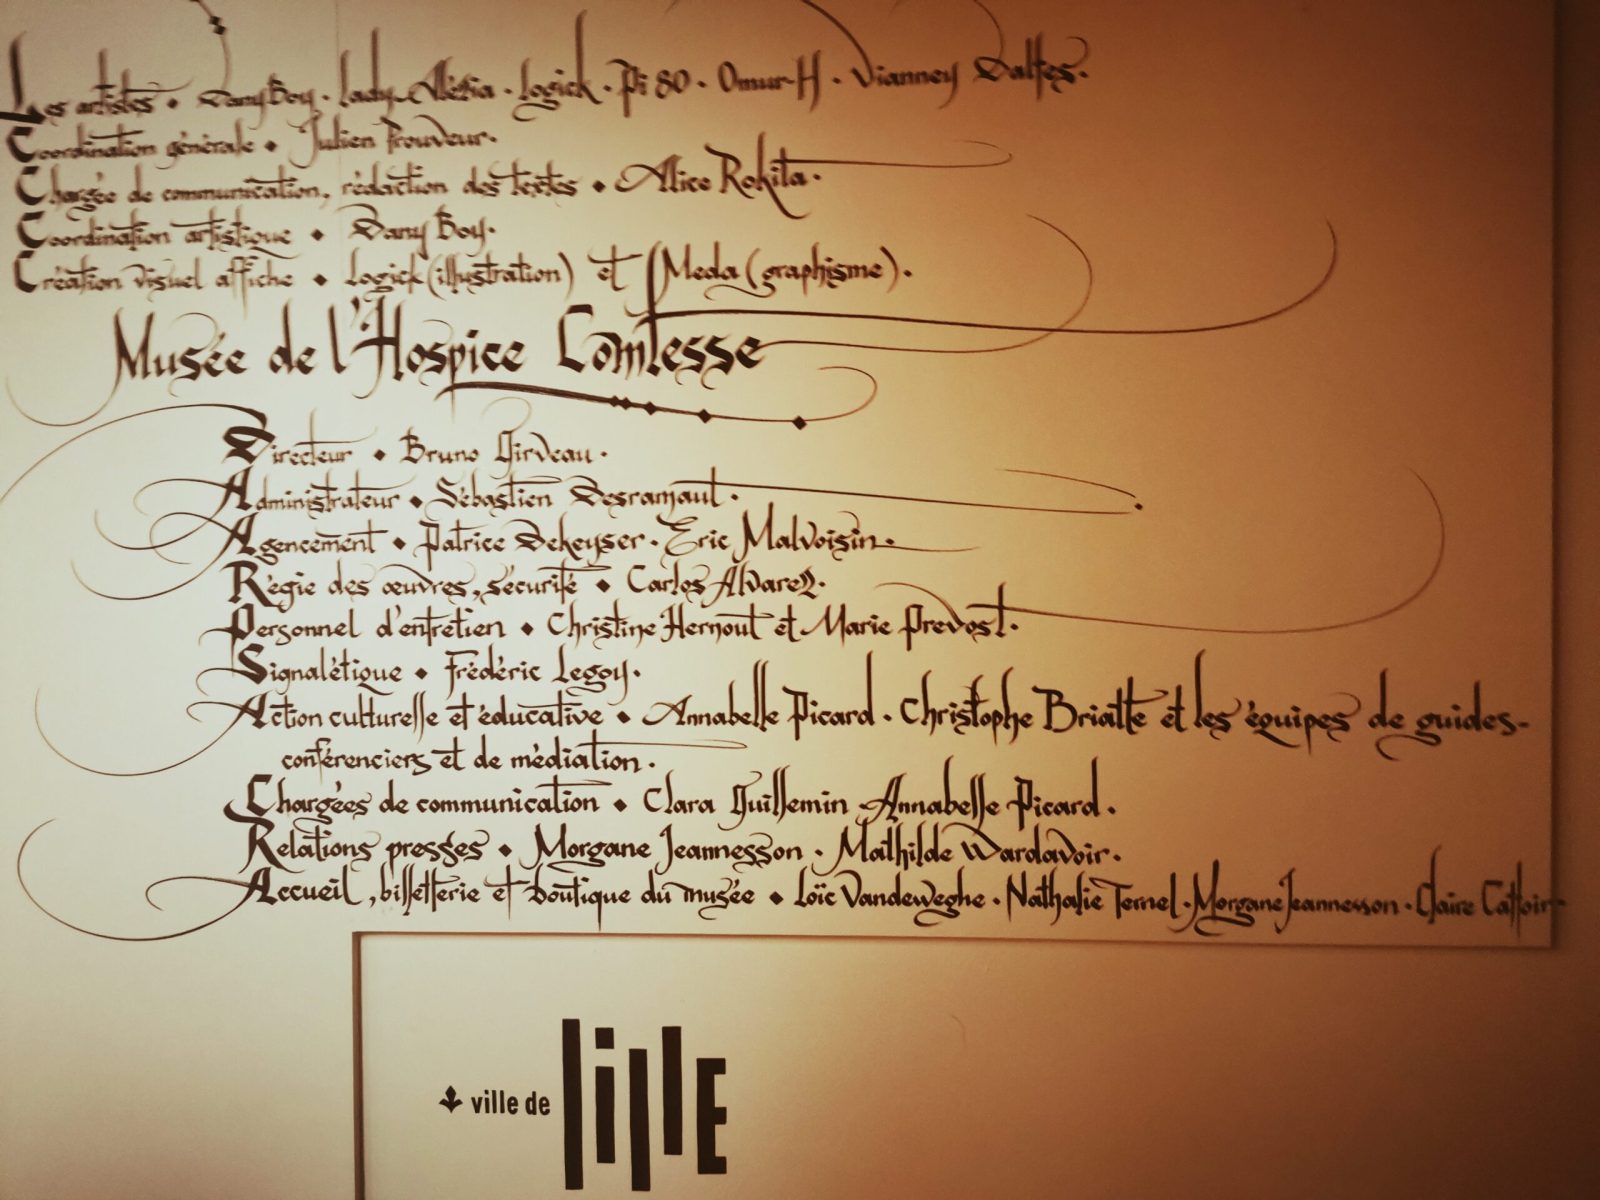 Les artistes • Dany Boy • Lady Alézia • Logick • Pi 80 • Omur-H • Vianney Dalfes.
Coordination générale • Julien Prouveur.
Chargée de communication, rédaction des textes • Alice Rokita.
Coordination artistique • Dany Boy.
Création visuel affiche • Logick (illustration) et Meda (graphisme).
Musée de l'Hospice Comtesse
Directeur • Bruno Girveau.
Administrateur • Sébastien Desramaut.
Agencement • Patrice Dekeyser • Eric Malvoisin.
Régie des œuvres, sécurité • Carlos Alvarez.
Personnel d'entretien • Christine Hernout et Marie Prevost.
Signalétique • Frédéric Legoy.
Action culturelle et éducative • Annabelle Picard • Christophe Brialte et les équipes de guides-
conférenciers et de médiation.
Chargées de communication • Clara Guillemin • Annabelle Picard.
Relations presses • Morgane Jeannesson • Mathilde Wardavoir.
Accueil, billetterie et boutique du musée • Loïc Vandeweghe • Nathalie Ternel • Morgane Jeannesson • Claire Cattoir
ville de lillE